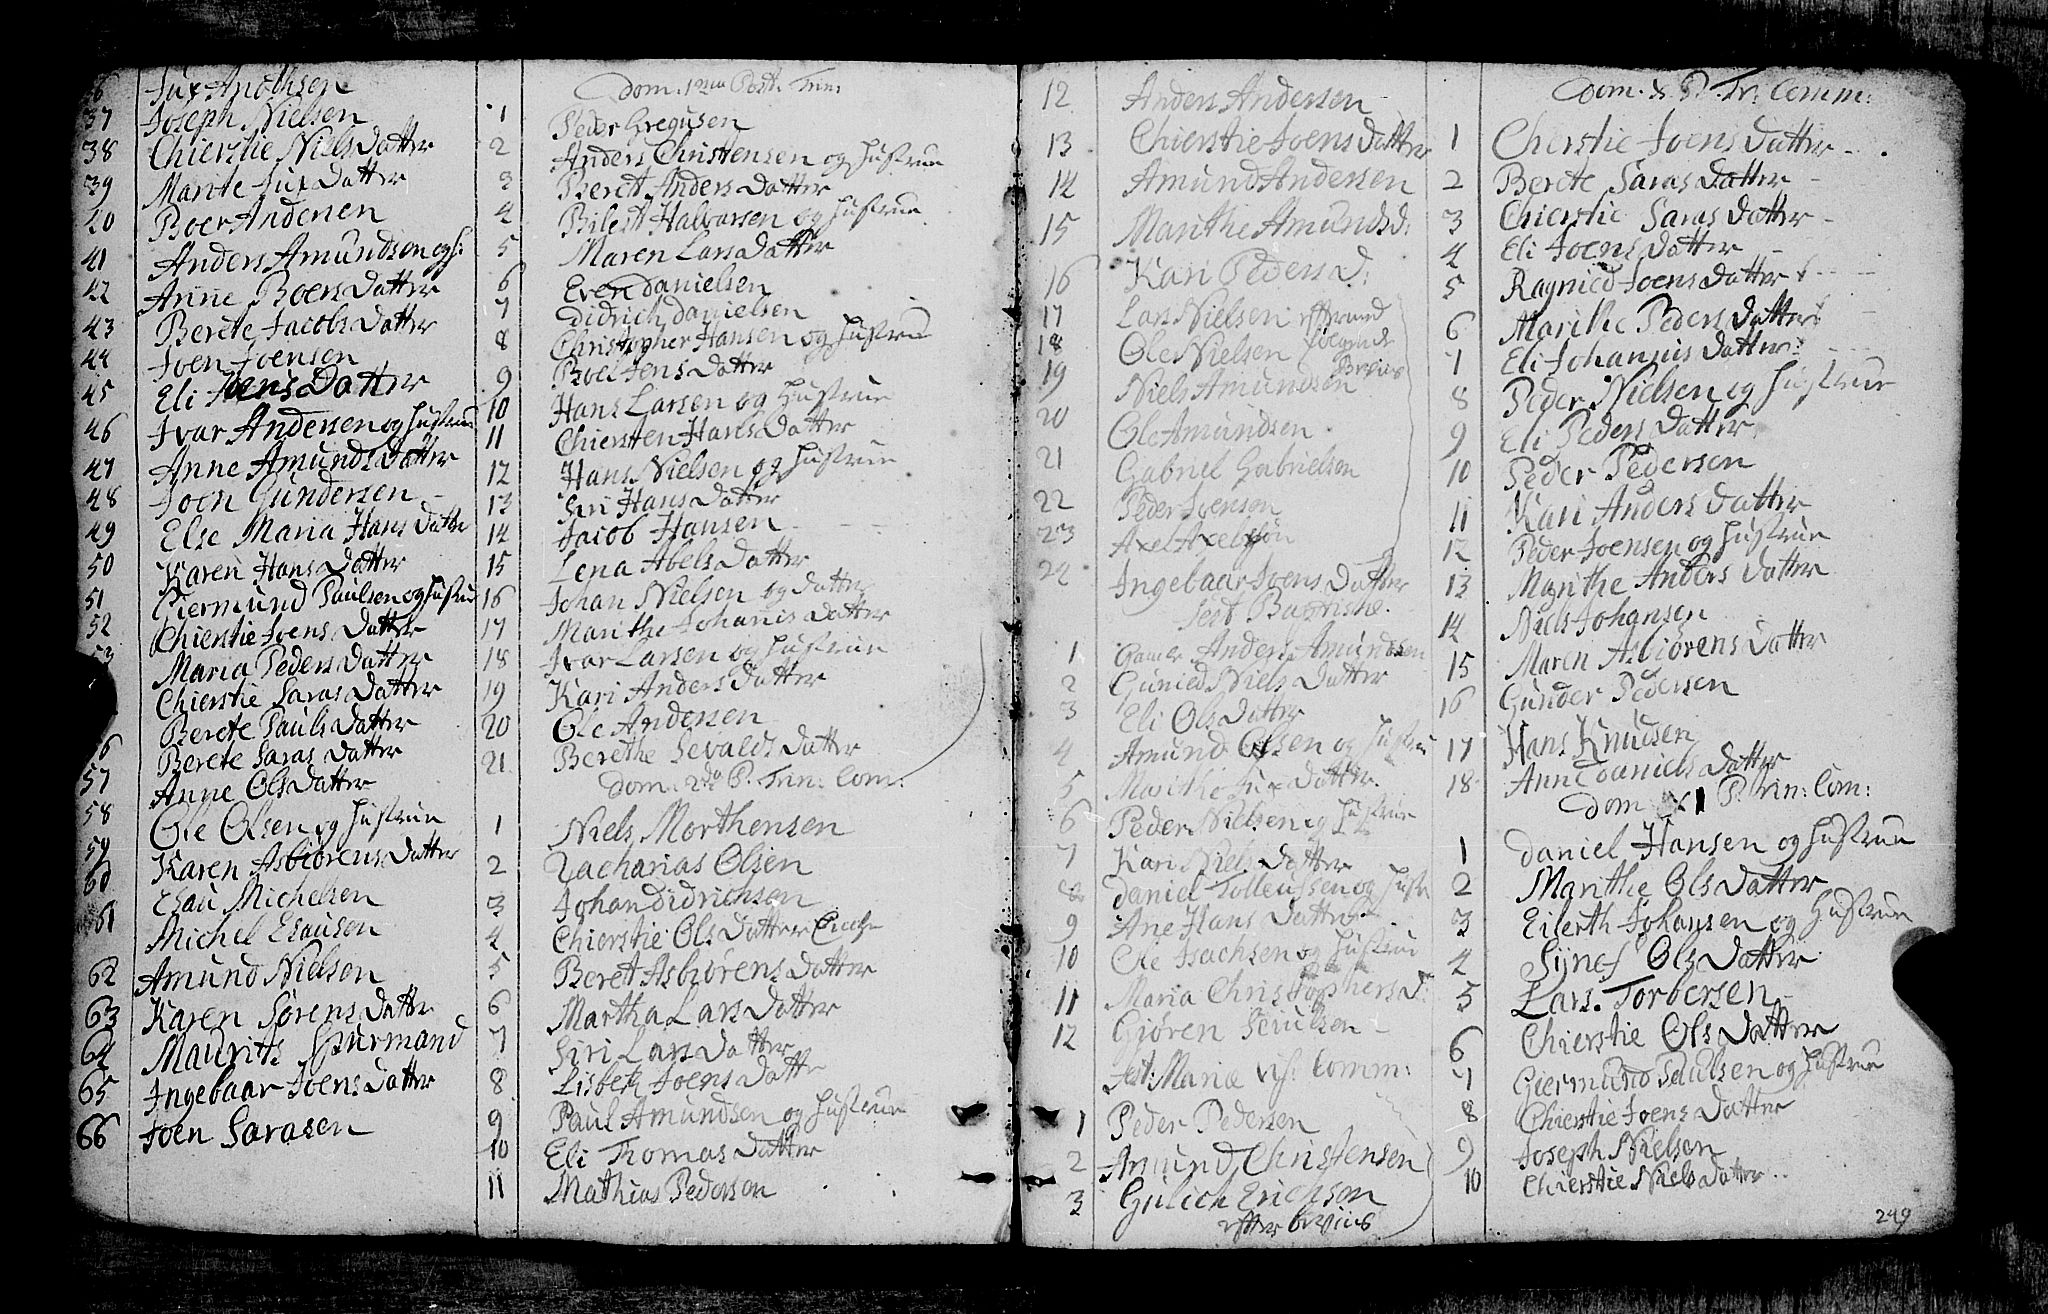 36 Jux Anderssen
37 Joseph Nielsen
38 Chierstie Niels Datter
39 Marite Jux Datter
40 Boer Andersen
41 Anders Amundsen og h:
42 Anne Boers Datter
43 Berete Jacobs Datter
44 Joen Joensen
45 Eli Joens Datter
46 Ivar Andersen og Hustrue
47 Anne Amunds Datter
48 Joen Gundersen
49 Else Maria Hans Datte
50 Karen Hans Datter
51 Giermund Paulsen og Hustrue
52 Chierstie Joens Datter
53 Maria Peders Datter
Chierstie Saras Datter
Berete Pauls Datter
6 Berete Saras Datter
57 Anne Ols Datter
58 Ole Olsen og Hustrue
59 Karen Asbiørens Datter
60 Esau Michelsen
61 Michel Esausen
62 Amund Nielsen
63 Karen Sørens Datte
64 Maurits Spurmand
65 Ingebaar Joens Datter
66 Joen Sarasen
Dom. 1ma Post. Trin:
1 Peder Gregusen
2 Anders Christensen og Hustrue
3 Beret Anders Datter
4 Bilest Halvorsen og Hustrue
5 Maren Lars Datter
6 Even Danielsen
7 Didrich Danielsen
8 Christopher Hansen og Hustrue
9 Boel Jens Datter
10 Hans Larsen og Hustrue
11 Chiersten Hans Datter
12 Hans Nielsen og Hustrue
13 Siri Hans Datter
14 Jacob Hansen
15 Lena Abels Datter
16 Johan Nielsen og Datter
17 Marithe Johanis Datter
18 Ivar Larsen og Hustrue
19 Kari Anders Datter
20 Ole Andersen
21 Berethe Sevalds Datter
Dom. 2da P. Trin: Com:
1 Niels Morthensen
2 Zacharias Olsen
3 Johan Didrichsen
4 Chierstie Ols Datter
5 Beret Asbiørens Datter
6 Martha Lars Datter
7 Siri Lars Datter
8 Lisbeth Joens Datte
9 Paul Amundsen og Hustrue
10 Eli Thomas Datter
11 Mathias Pederson
12 Anders Andersen
13 Chierstie Joens Datter
14 Amund Andersen
15 Marithe Amunds d:
16 Kari Peders D:
17 Lars Nielsen efter und
18 Ole Nielsen følgende
19 Niels Amundsen Breviis
20 Ole Amundsen
21 Gabriel Gabrielsen
22 Peder Iversen
23 Axel Axelsøn
24 Ingebaar Joens Datter
Fest Baptistæ.
1 Gamer Anders Amundsen
2 Gunied Niels Datter
3 Eli Ols Datter
4 Amund Olsen og Hustru
5 Marithe Jux Datter.
6 Peder Nielsen og Hustrue
7 Kari Niels Datter
8 Daniel Tollevssen og Hust
9 Ane Hans Datter
10 Ole Isachsen og Hustrue
11 Maria Christophers d:
12 Giøren Poulsen
Fest: Mariæ vis: Comm:
1 Peder Pedersen
2 Amund Christensen
3 Gulich Erichson
efter breviis
Dom. & P. Tr: Comm:
1 Cherstie Joens Datter
2 Berete Saras Datter
3 Chierstie Saras Datter
4 Eli Joens Datter
5 Ragnied Joens Datter
6 Marithe Peders Datter
7 Eli Johannis Datter
8 Peder Nielsen og Hustrue
9 Eli Peders Datter
10 Peder Pedersen
11 Kari Anders Datter
12 Peder Joensen og Hustrue
13 Marithe Anders Datter
14 Niels Johansen
15 Maren Asbiørens Datter
16 Gunder Pedersen
17 Hans Knudsen
18 Anne Daniels Datter
Dom P. Trin: Com:
1 Daniel Hansen og Hustrue
2 Marithe Ols Datter
3 Eilerth Johansen og Hustrue
4 Signes Ols Datter
5 Lars Torbersen
6 Chierstie Ols Datter
7 Giermund Paulsen og Hustrue
8 Chierstie Joens Datter
9 Joseph Nielsen
10 Chierstie Niels Datter
249